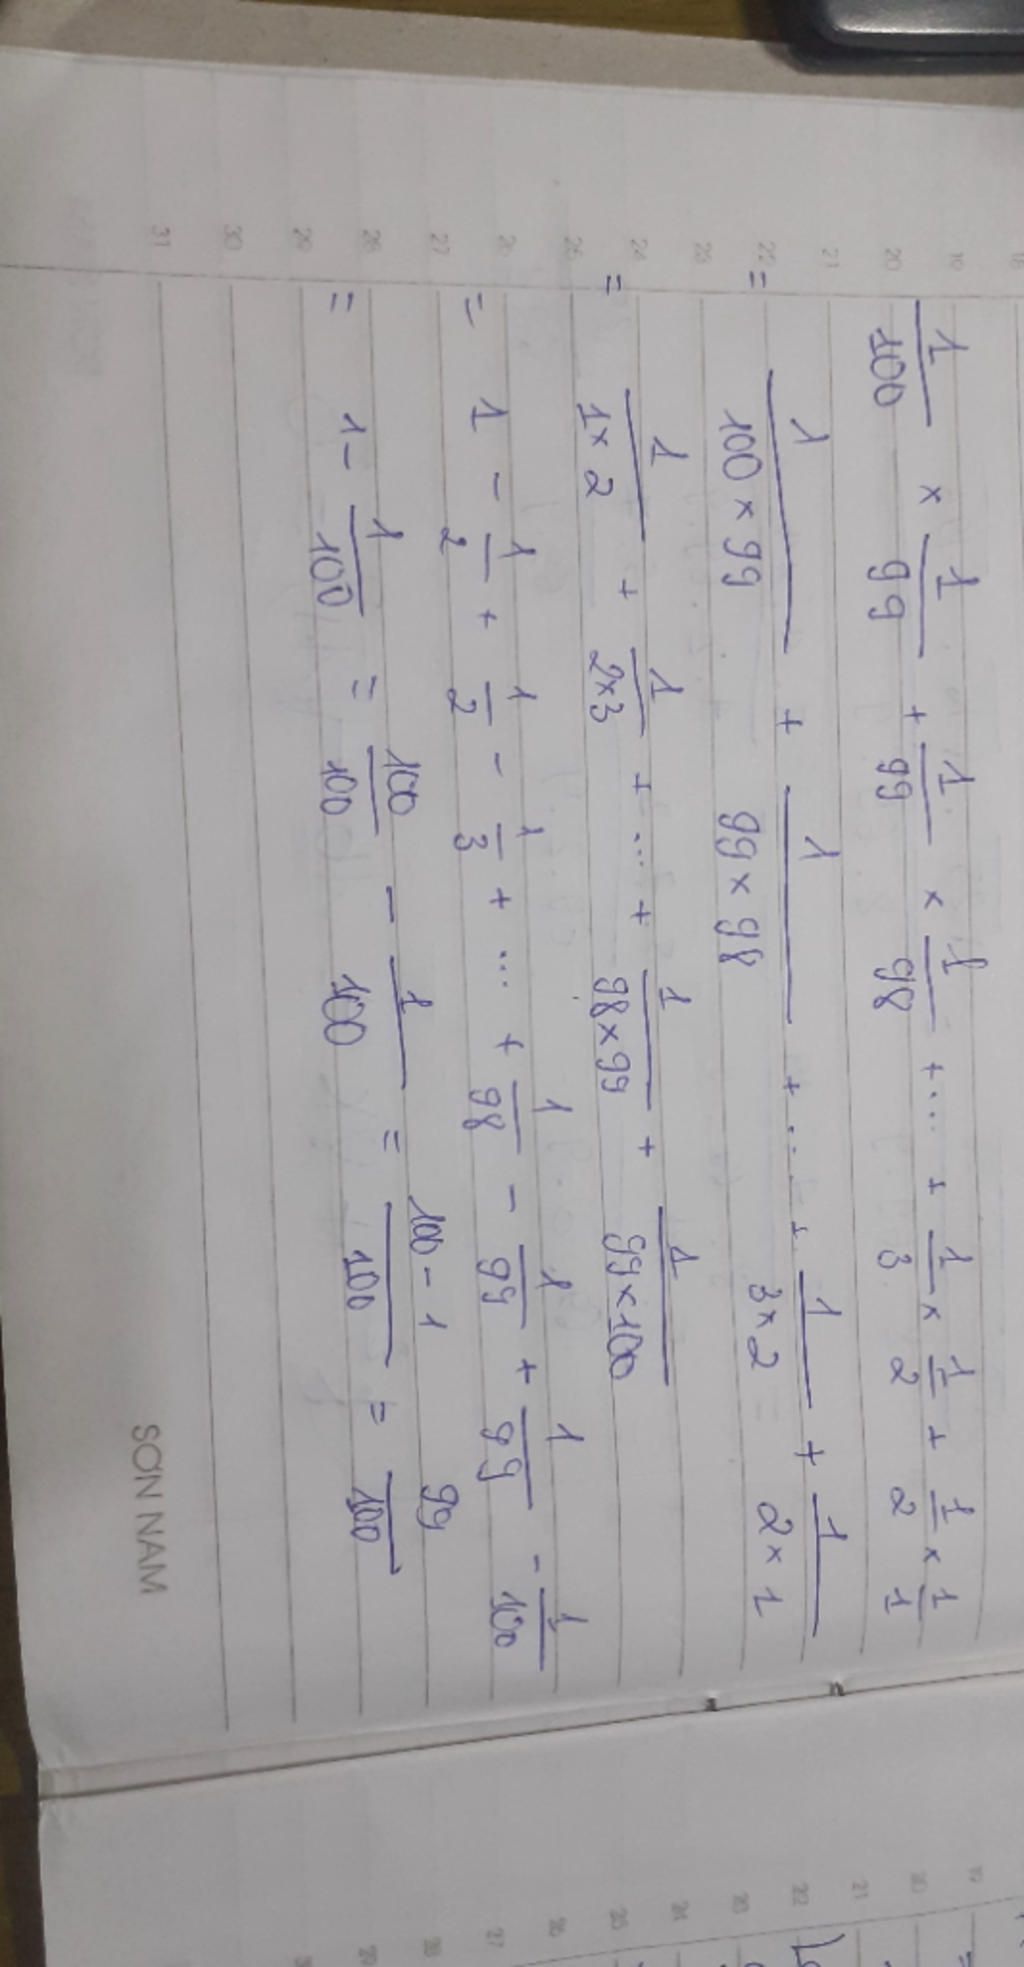 1/100 × 1/99 + 1/99 × 1/98 + ... + 1/3 × 1/2 + 1/2 × 1/1
= 1/(100 × 99) + 1/(99 × 98) + ... + 1/(3 × 2) + 1/(2 × 1)
= 1/(1 × 2) + 1/(2 × 3) + ... + 1/(98 × 99) + 1/(99 × 100)
= 1 - 1/2 + 1/2 - 1/3 + ... + 1/98 - 1/99 + 1/99 - 1/100
= 1 - 1/100 = 100/100 - 1/100 = (100 - 1)/100 = 99/100
19
20
21
22
23
24
25
26
27
28
29
30
31
SON NAM
19
20
21
22
23
24
25
26
27
28
29
30